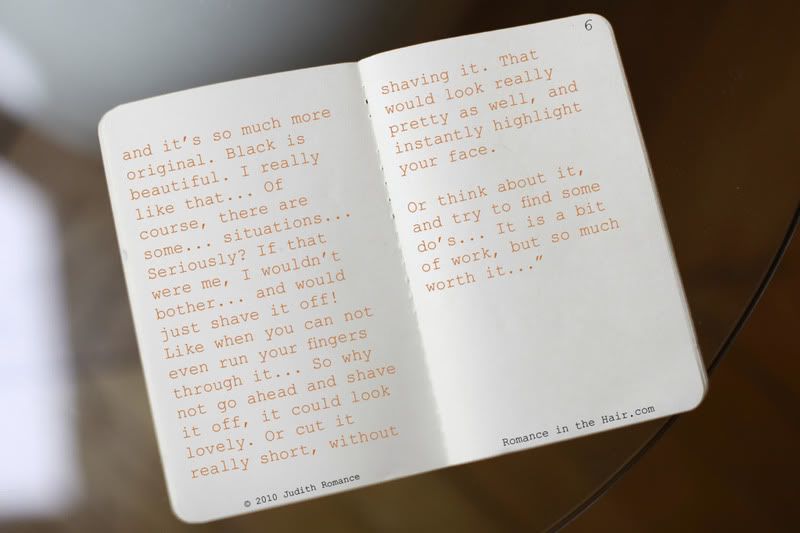 and it's so much more
original. Black is
beautiful. I really
like that... Of
course, there are
some... situations...
Seriously? If that
were me, I wouldn't
bother... and would
just shave it off!
Like when you can not
even run your fingers
through it... So why
not go ahead and shave
it off, it could look
lovely. Or cut it
really short, without
© 2010 Judith Romance
6
shaving it. That
would look really
pretty as well, and
instantly highlight
your face.
Or think about it,
and try to find some
do's... It is a bit
of work, but so much
worth it..."
Romance in the Hair.com